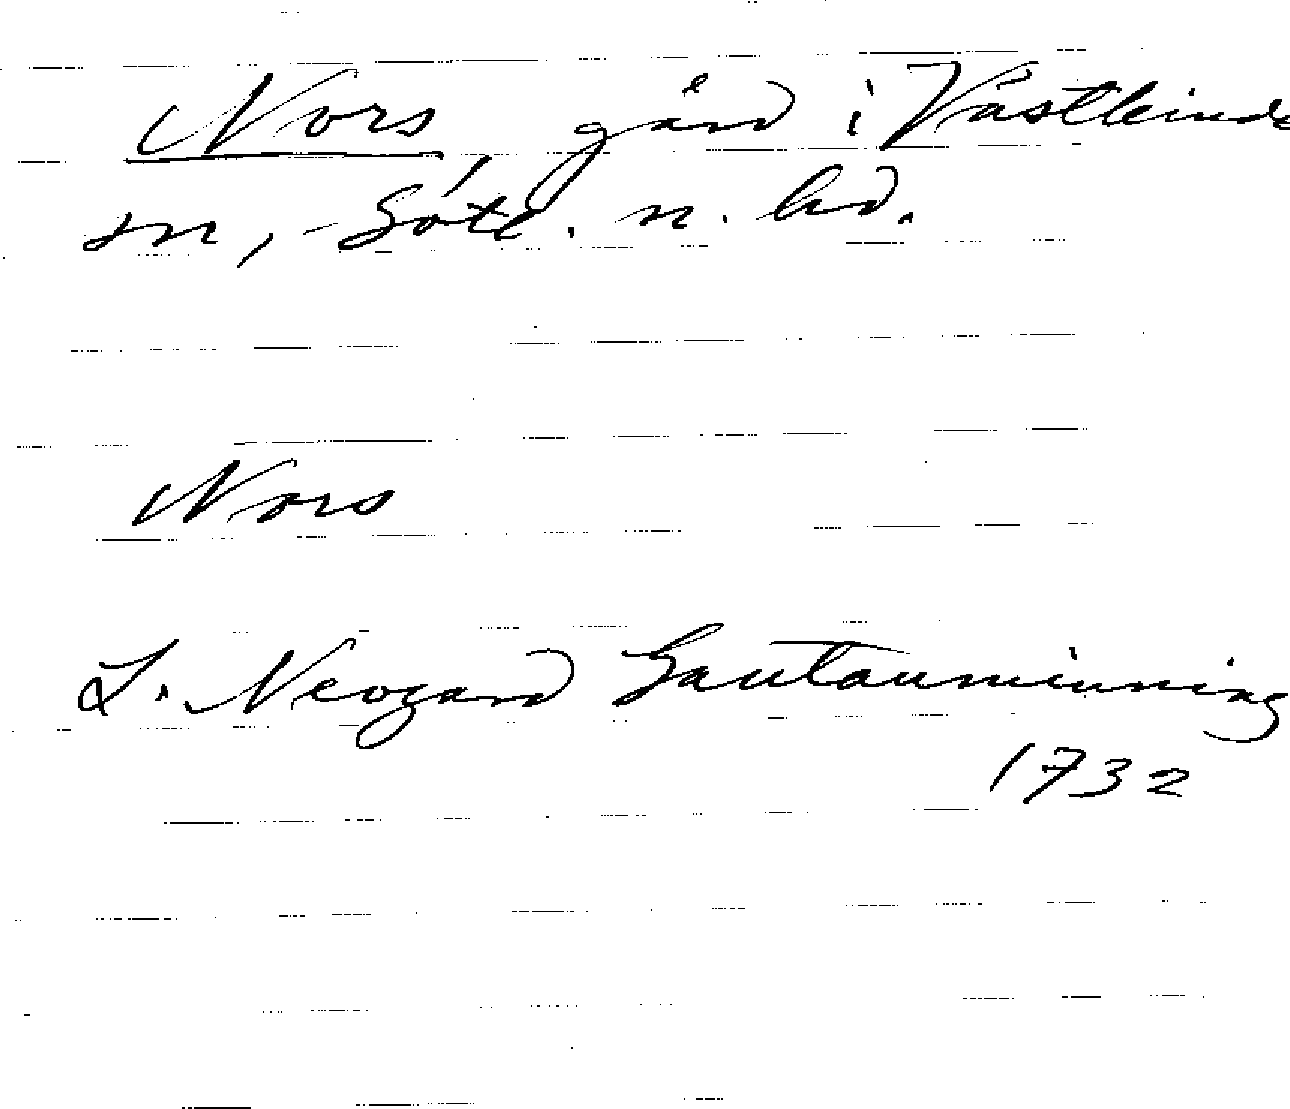 Nors, gård i Västkinde
sn, Gotl. n. hd.
Nors
L. Neogard Gautauminning
1732